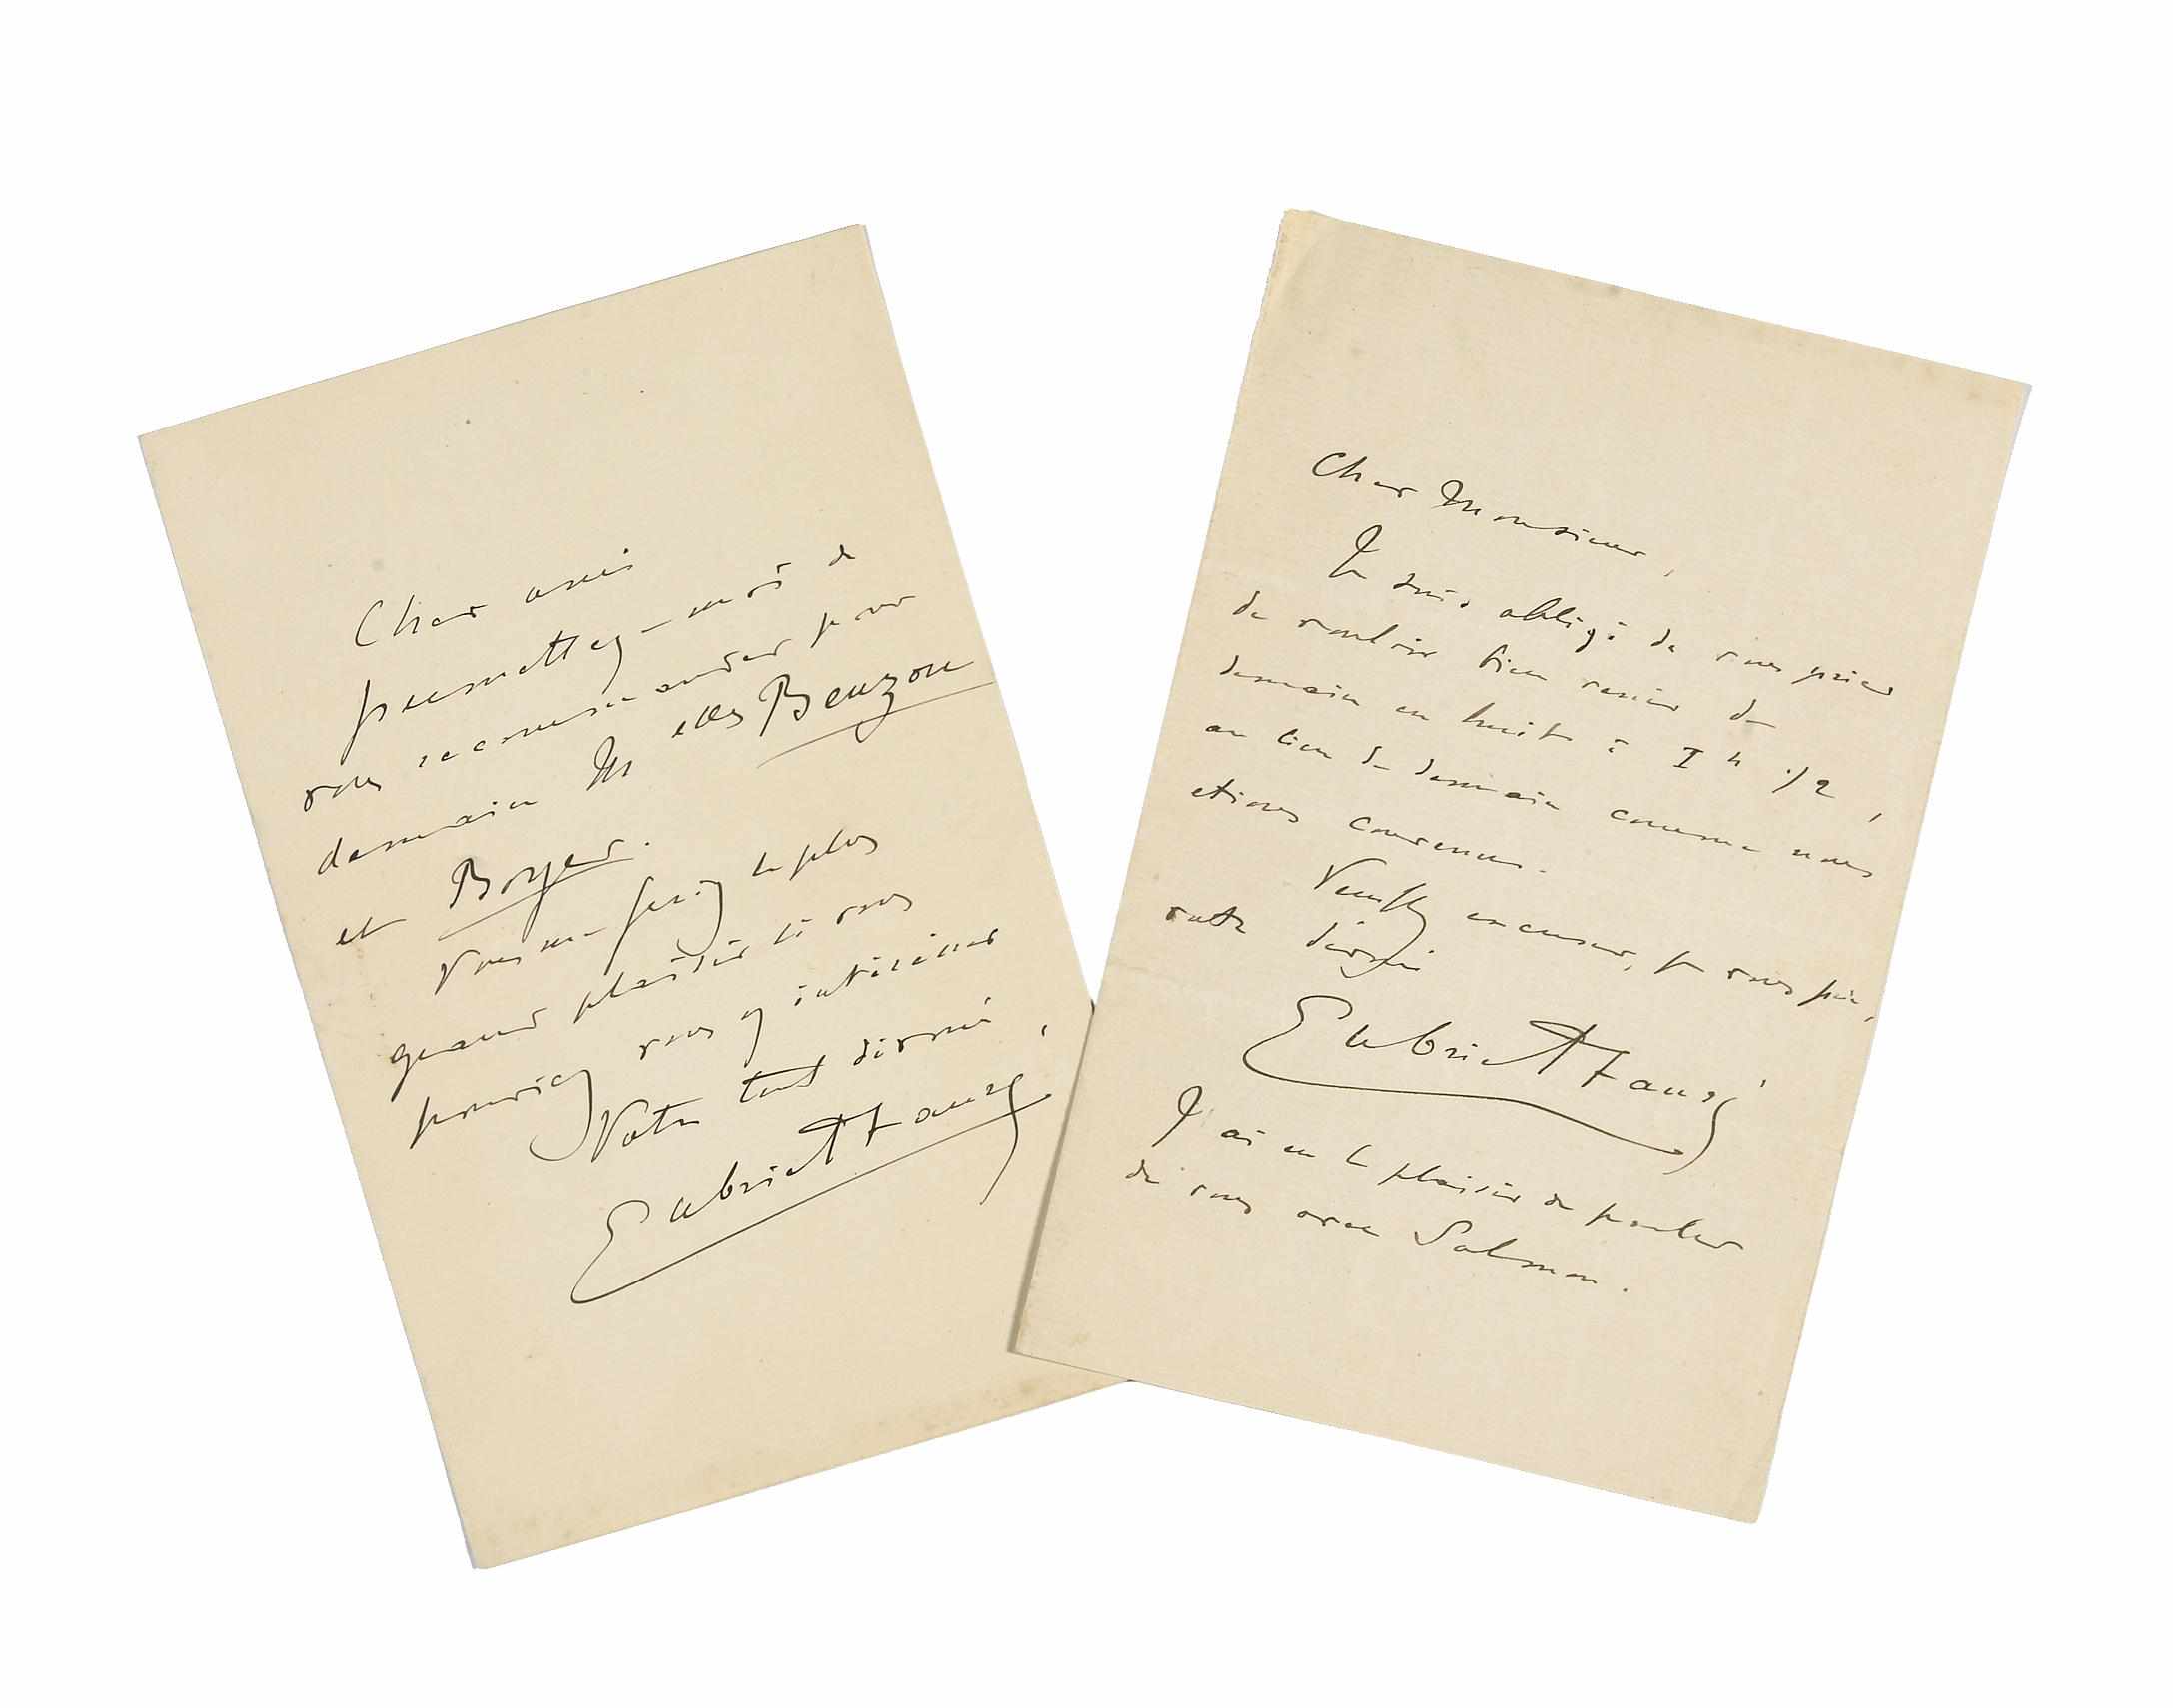 Cher ami
permettez-moi de
vous recommander pour
demain Melles Benzon
et Boyer.
Vous me feriez le plus
grand plaisir si vous
pouviez vous y intéresser
Votre tout dévoué,
Gabriel Fauré
Cher Monsieur,
Je suis obligé de vous prier
de vouloir bien venir de
demain en huit à 1h 1/2,
au lieu de demain comme nous
étions convenus.
Veuillez excuser, je vous prie,
votre dévoué
Gabriel Fauré
J'ai eu le plaisir de parler
de vous avec Salmon.